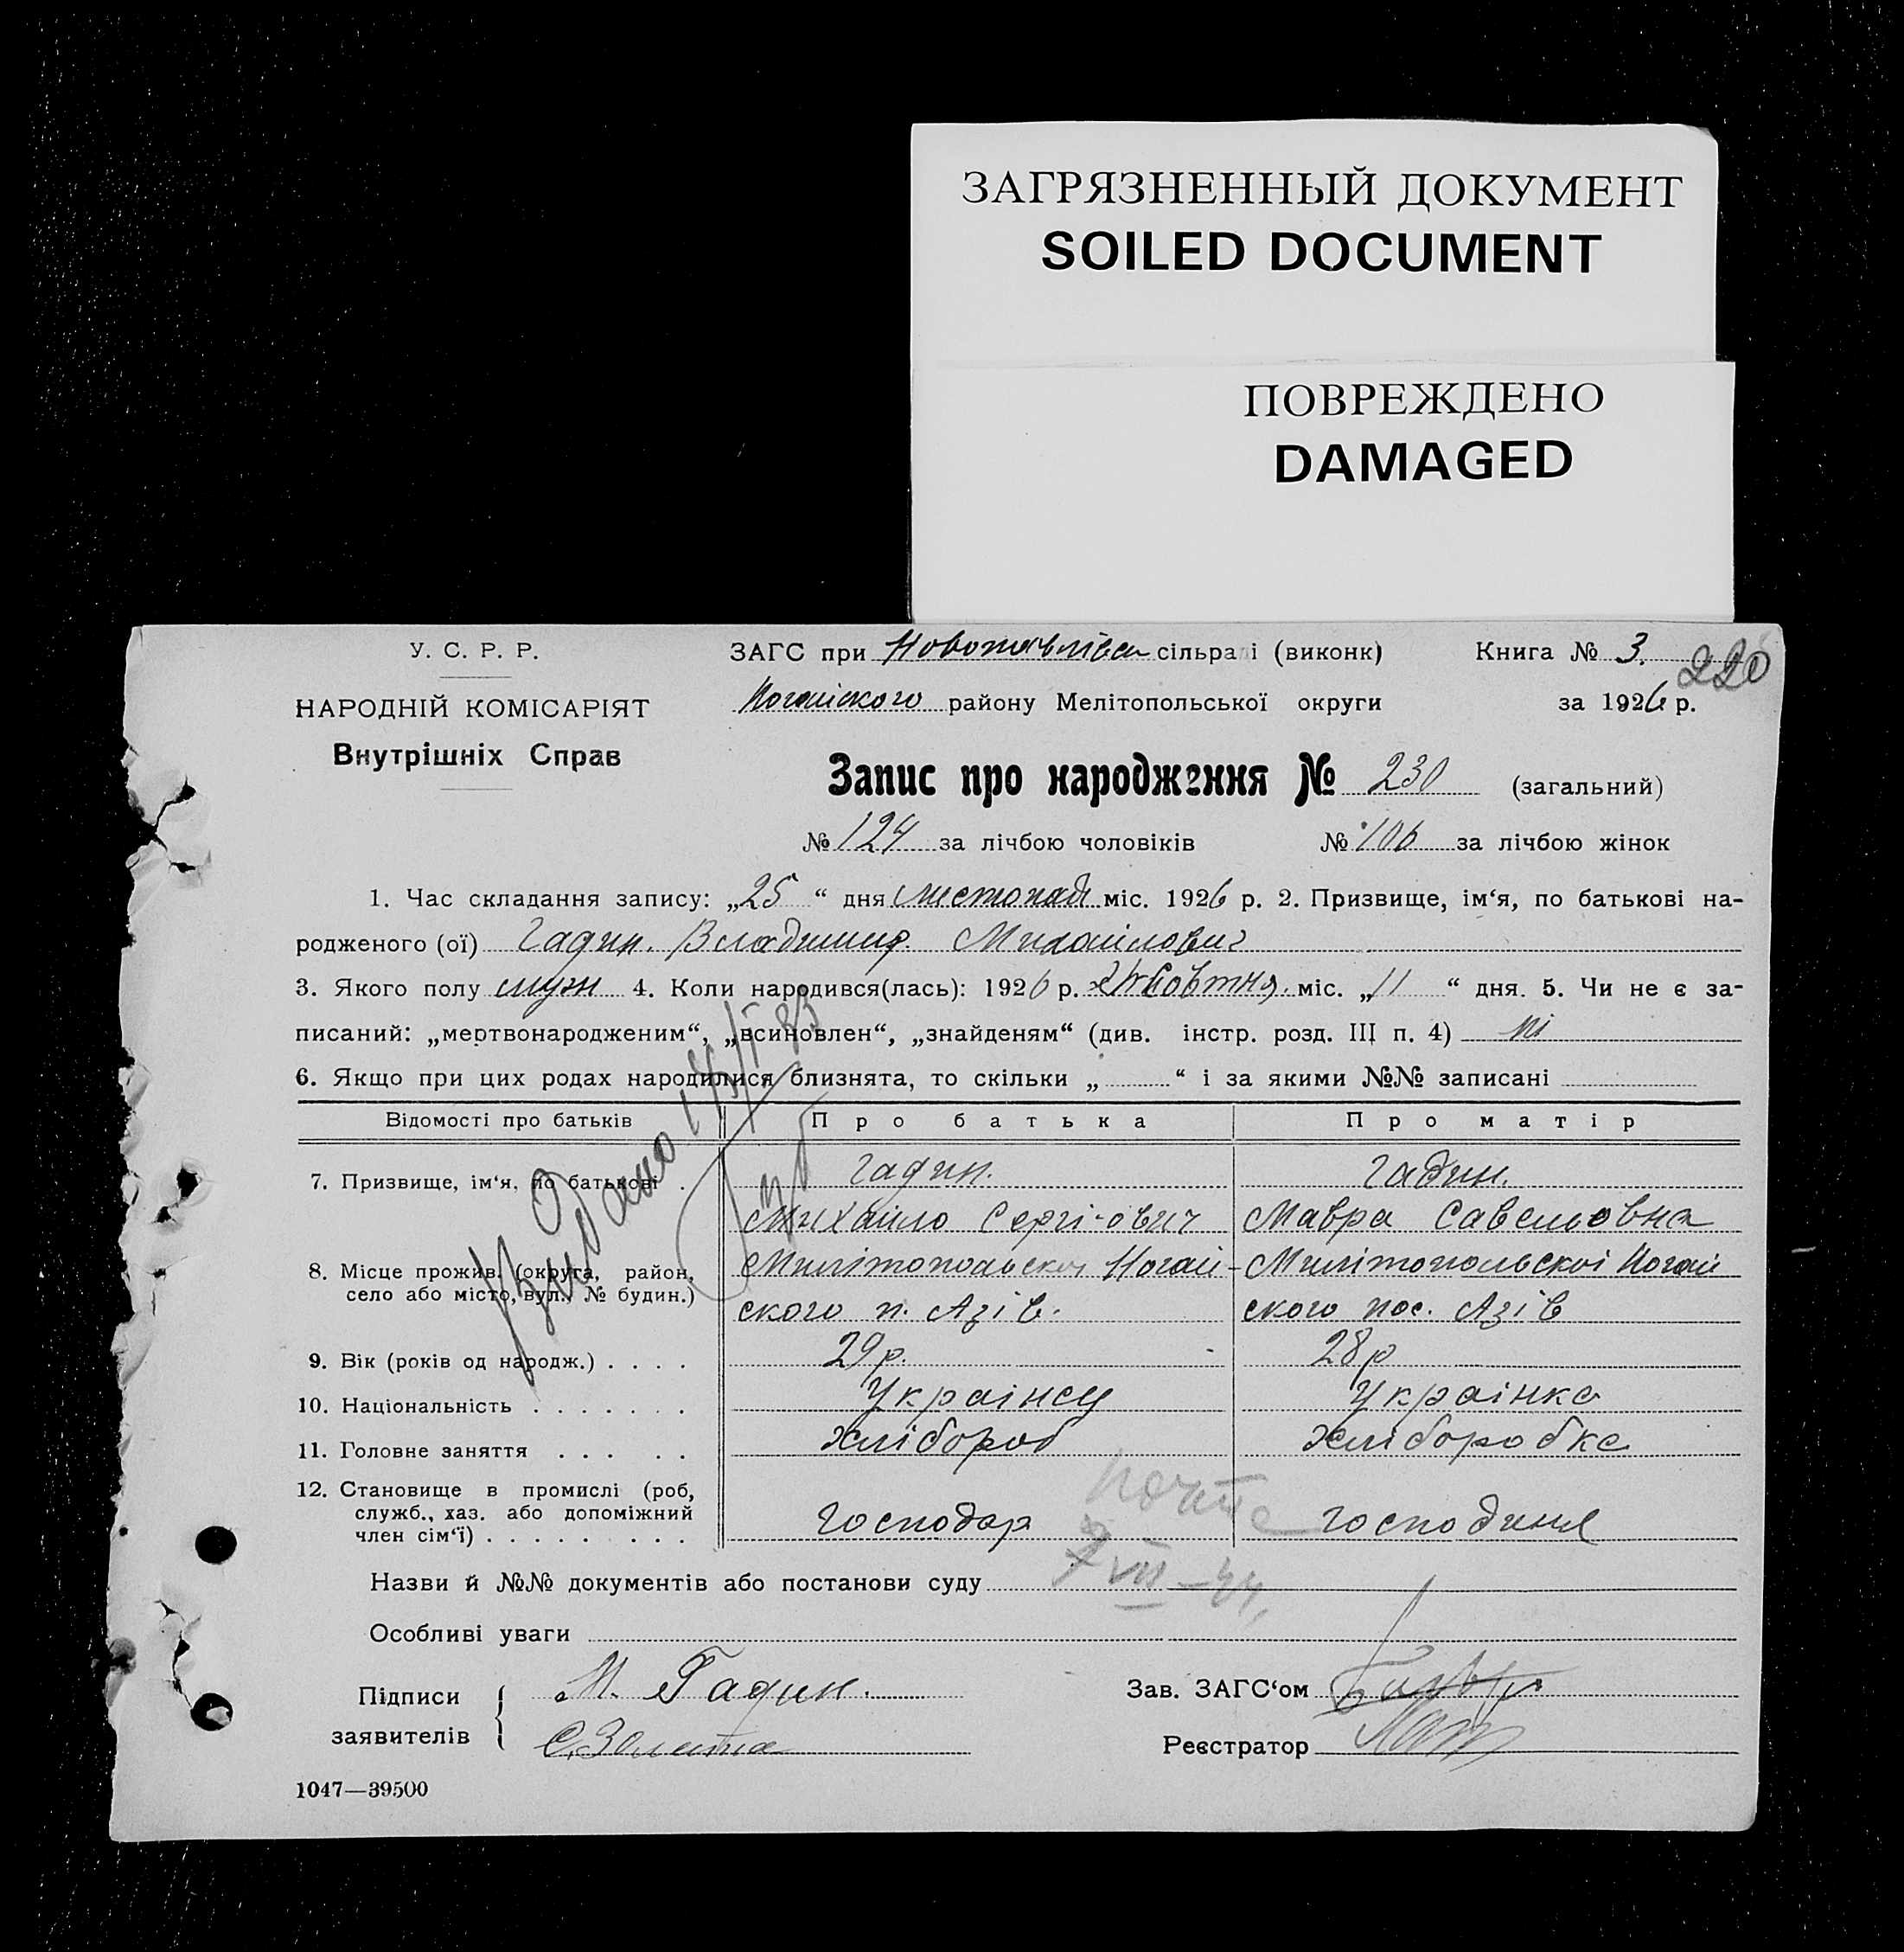 ЗАГРЯЗНЕННЫЙ ДОКУМЕНТ
SOILED DOCUMENT
ПОВРЕЖДЕНО
DAMAGED
У. С. Р. Р.
НАРОДНІЙ КОМІСАРІЯТ
Внутрішніх Справ
ЗАГС при сільраді (виконк)
Книга № 3. 220
району Мелітопольської округи
за 1926 р.
Запис про народження № 230 (загальний)
№ 124 за лічбою чоловіків № 106 за лічбою жінок
1. Час складання запису: „25“ дня листопад міс. 1926 р. 2. Призвище, ім‘я, по батькові на-
родженого (ої) Гадин. Владимир Михайлович
3. Якого полу муж 4. Коли народився(лась): 1926 р. жовтня міс. „11“ дня. 5. Чи не є за-
писаний: „мертвонародженим“, „всиновлен“, „знайденям“ (див. інстр. розд. III п. 4) ні
6. Якщо при цих родах народилися близнята, то скільки „ “ і за якими №№ записані
Відомості про батьків Про батька Про матір
7. Призвище, ім‘я, по батькові . Гадин. Гадин.
Михайло Сергі-ович Мавра Савельовна
8. Місце прожив. (округа, район, Милітопольскоі Ногай- Милітопольскоі Ногай
село або місто, вул., № будин.) ского п. Азів. ского пос. Азів
9. Вік (років од народж.) . . . . 29 р. 28 р
10. Національність . . . . . . . Украінец Украінка
11. Головне заняття . . . . . Хлібороб Хліборобка
12. Становище в промислі (роб,
служб., хаз. або допоміжний
член сім‘ї) . . . . . . . . Господар Господиня
Назви й №№ документів або постанови суду
Особливі уваги
Підписи М. Гадин. Зав. ЗАГС‘ом
заявителів Реєстратор
1047—39500